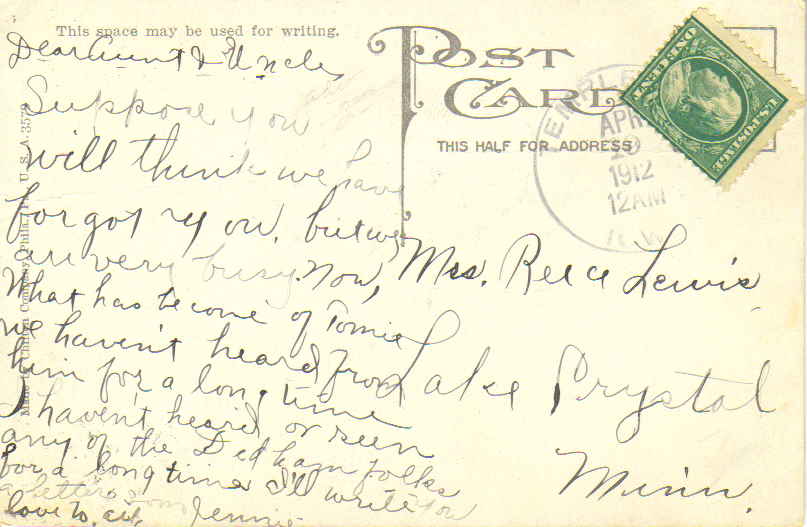 This space may be used for writing.
Dear Aunt & Uncle,
Suppose you
will think we have
forgot you, but we
are very busy now,
What has become of Tomie
we haven't heard from
him for a long time
I haven't heard or seen
any of the Dedham folks
for a long time I'll write you
a letter soon
love to all Jennie
Made by Chilton Company, Phila., U. S. A. 3573
POST
CARD
THIS HALF FOR ADDRESS
TEMPLE
APR
1912
12AM
U.S. POSTAGE
ONE CENT
Mrs. Reece Lewis
Lake Crystal
Minn.